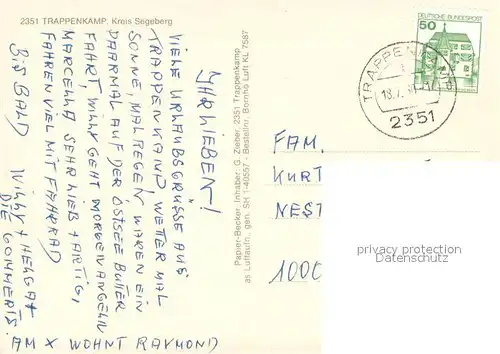 2351 TRAPPENKAMP, Kreis Segeberg
IHR LIEBEN!
VIELE URLAUBSGRÜSSE AUS
TRAPPENKAMP WETTER MAL
SONNE, MAL REGEN WAREN EIN
PAARMAL AUF DER OSTSEE BUTTER
FAHRT, WILLY GEHT MORGEN ANGELN
MARCELLA SEHR LIEB + ARTIG,
FAHREN VIEL MIT FAHRRAD
BIS BALD
WILLY + HELGA +
DIE GOMMERTS.
AM X WOHNT RAYMOND
Papier-Becker, Inhaber: G. Zieber, 2351 Trappenkamp
as Luftaufn., gen. SH 1-40657 - Bestellnr. Bornho Luft KL 7587
DEUTSCHE BUNDESPOST
50
TRAPPENKAMP
2351
FAM.
KURT
NEST
1000
privacy protection
VIRTUAL DOMAINS